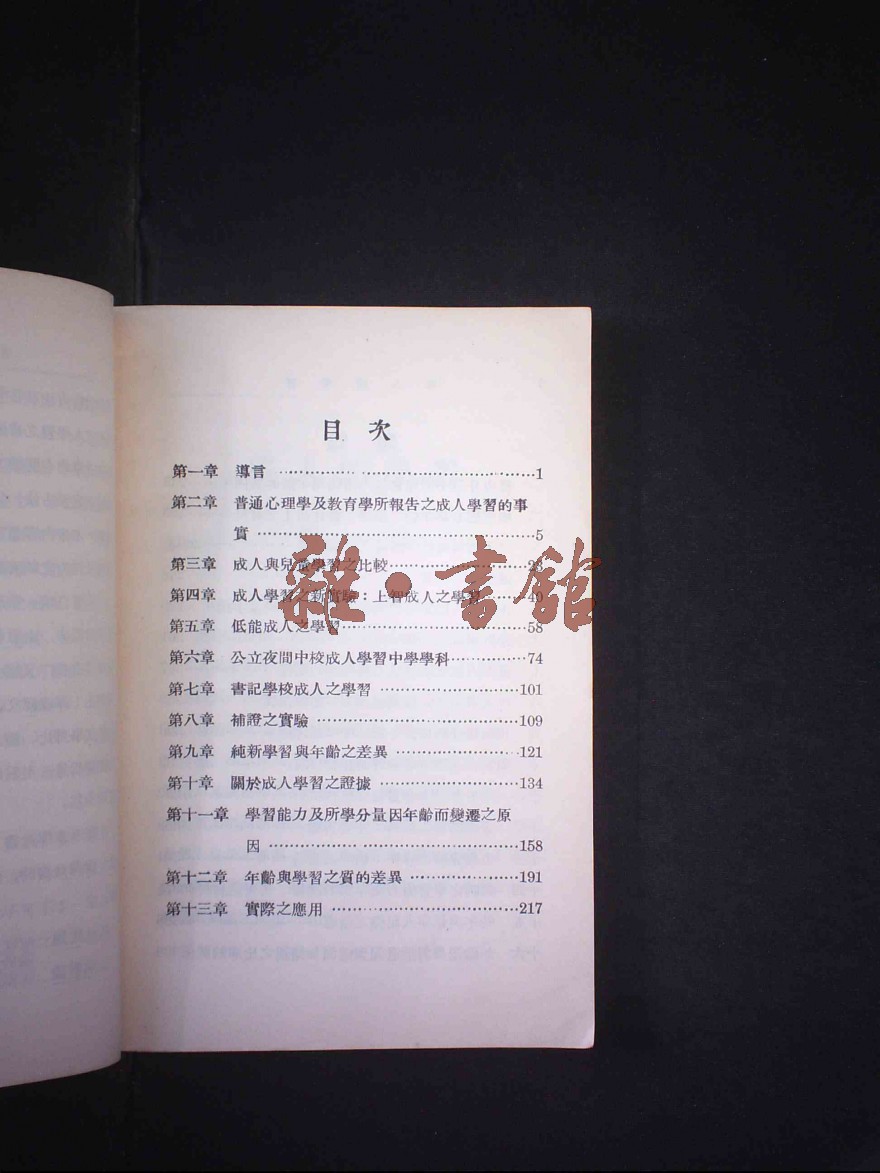 目次
第一章 導言 ……………………………1
第二章 普通心理學及教育學所報告之成人學習的事
實 ……………………………5
第三章 成人與兒童學習之比較………………23
第四章 成人學習之新實驗：上智成人之學習……40
第五章 低能成人之學習……………………58
第六章 公立夜間中校成人學習中學學科………74
第七章 書記學校成人之學習 ………………101
第八章 補證之實驗 ……………………109
第九章 純新學習與年齡之差異 ……………121
第十章 關於成人學習之證據 ………………134
第十一章 學習能力及所學分量因年齡而變遷之原
因 ……………………………158
第十二章 年齡與學習之質的差異 ……………191
第十三章 實際之應用 ……………………217
雜·書館